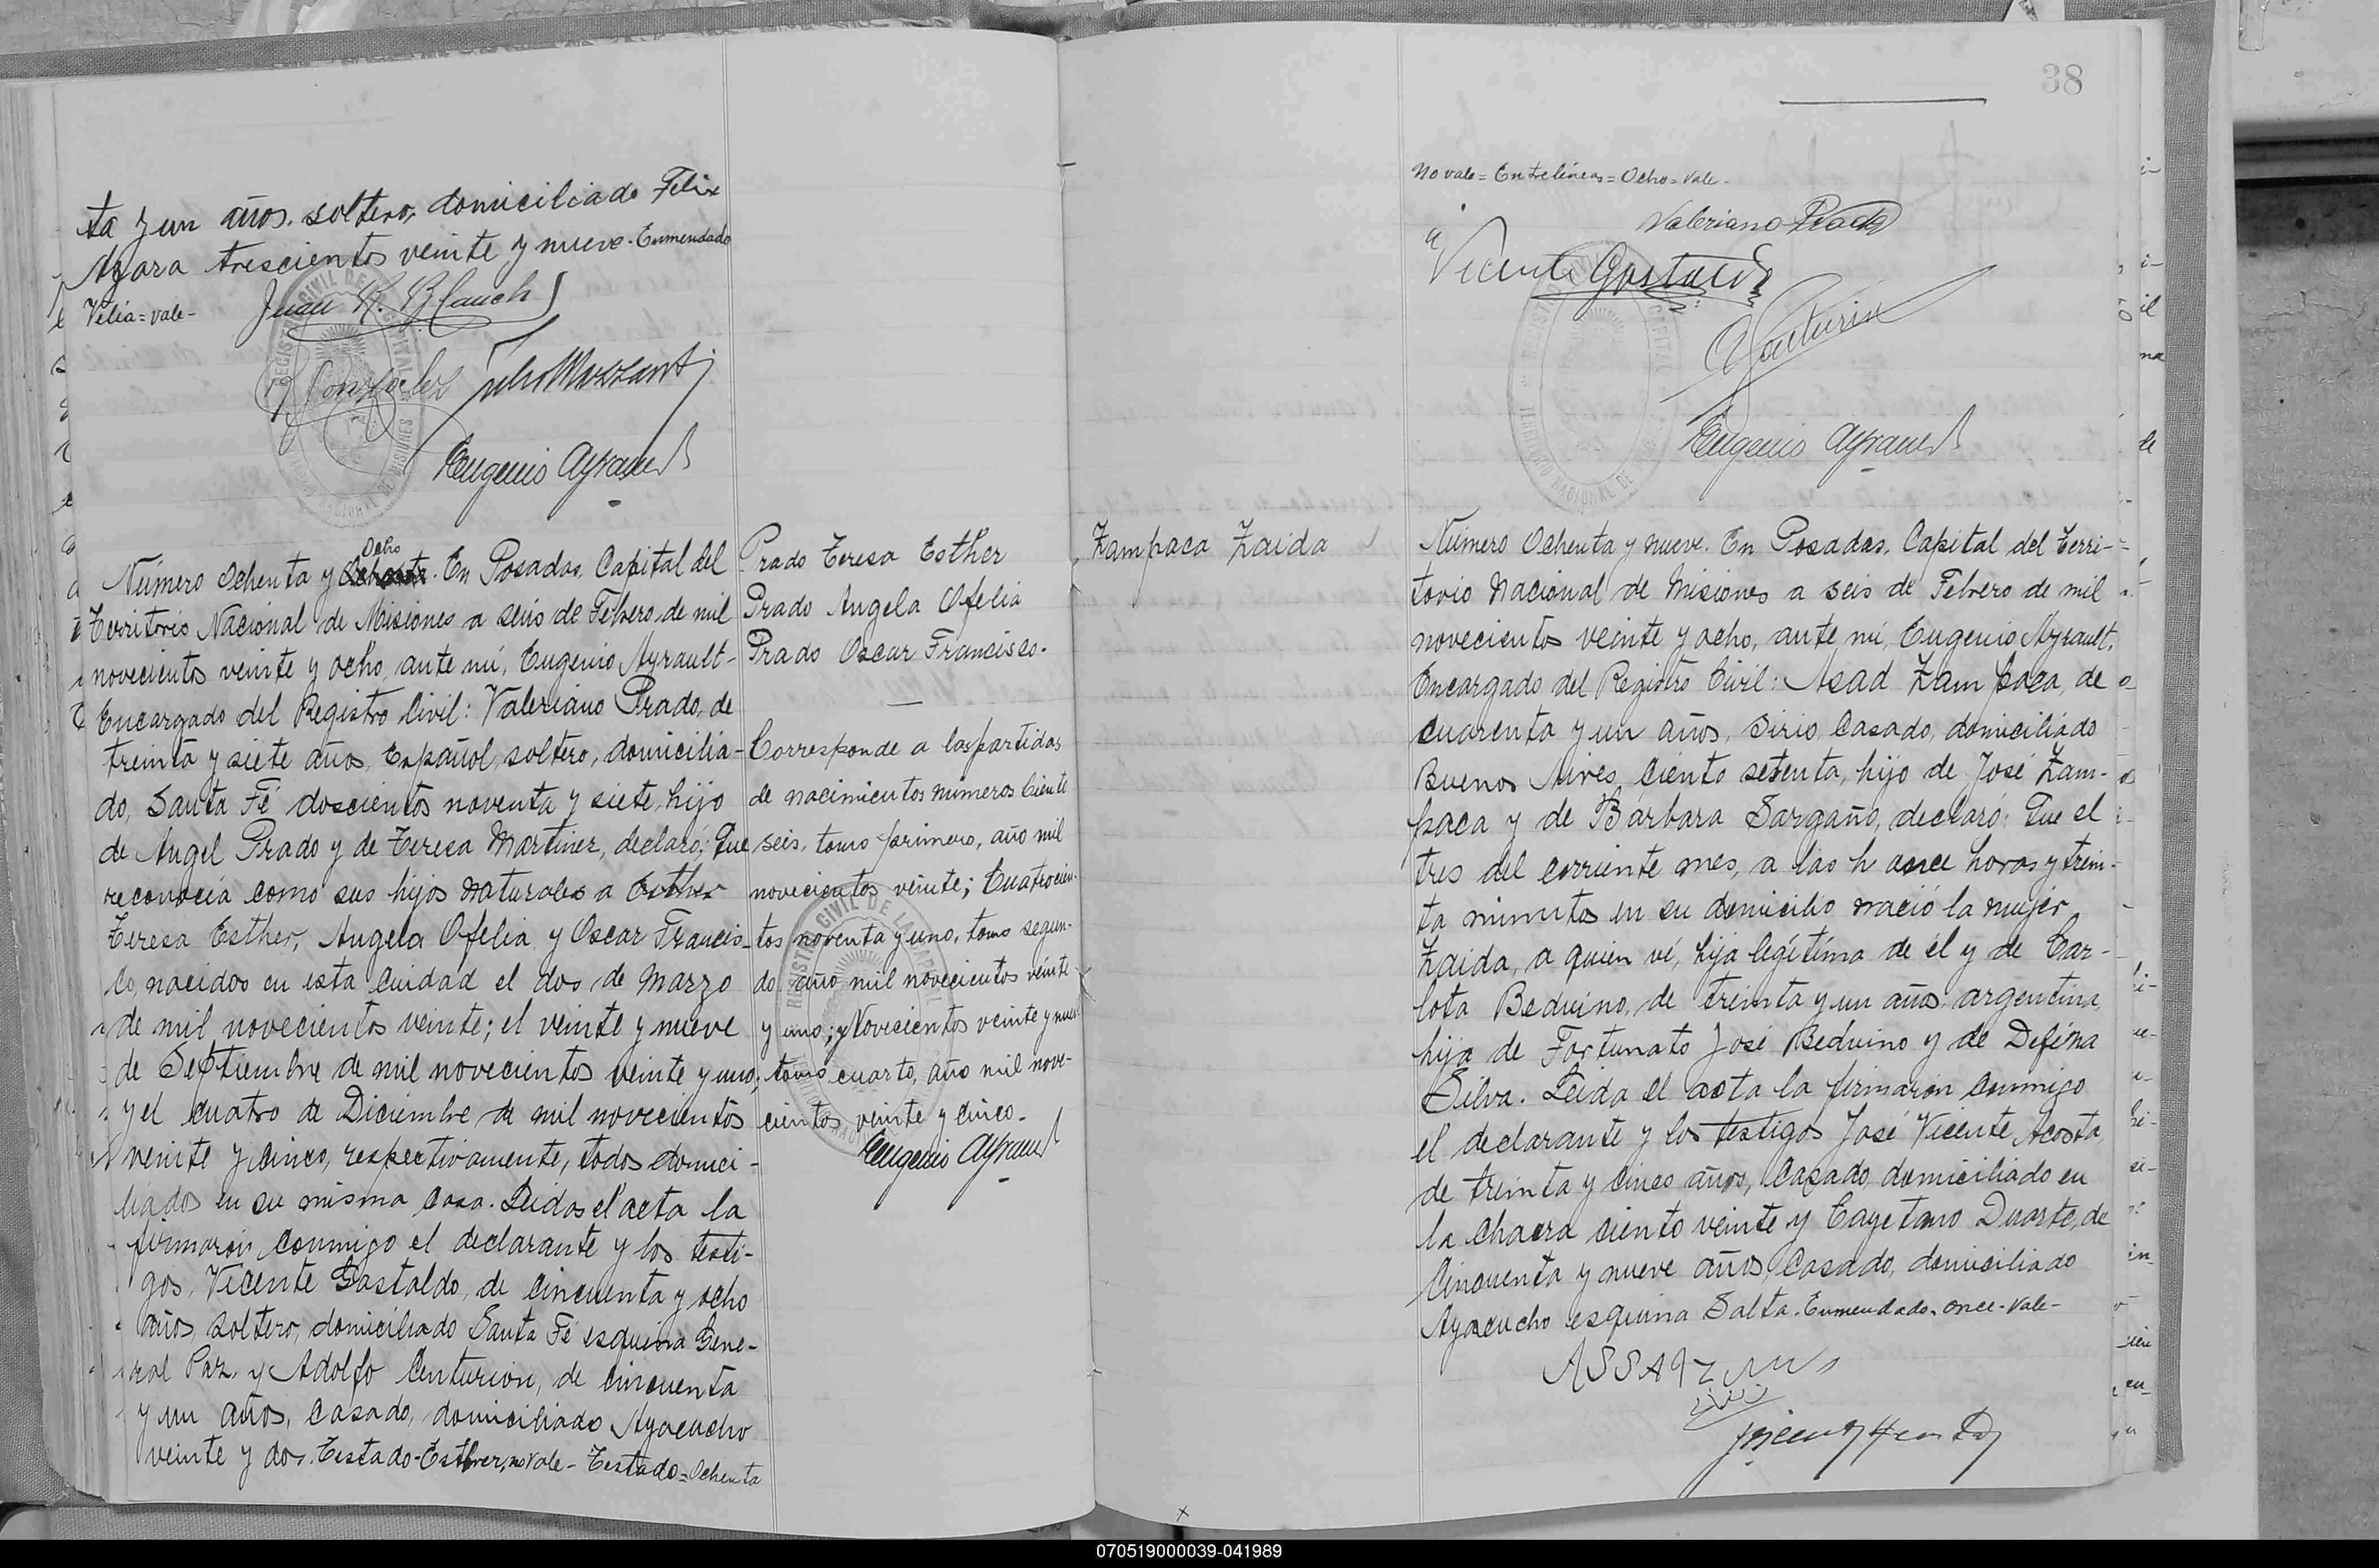 ta y un años, soltero, domiciliado Felix
Azara trescientos veinte y nueve. Enmendado
Velia = vale -
Juan R. Blanch
R. Gonzalez
Julio Mazzanti
Eugenio Ayrault
Ocho
Número Ochenta y Ochenta. En Posadas, Capital del
Territorio Nacional de Misiones a seis de Febrero de mil
novecientos veinte y ocho, ante mí, Eugenio Ayrault-
Encargado del Registro Civil: Valeriano Prado, de
treinta y siete años, Español, soltero, domicilia-
do, Santa Fé doscientos noventa y siete, hijo
de Angel Prado y de Teresa Martinez, declaró; Que
reconocía como sus hijos naturales a Esther
Teresa Esther, Angela Ofelia y Oscar Francis-
co, nacidos en esta Ciudad el dos de Marzo
de mil novecientos veinte; el veinte y nueve
de Septiembre de mil novecientos veinte y uno;
y el cuatro de Diciembre de mil novecientos
veinte y cinco, respectivamente, todos domici-
liados en su misma casa. Leidas el acta la
firmaron conmigo el declarante y los testi-
gos, Vicente Gastaldo, de cincuenta y ocho
años, soltero, domiciliado Santa Fé esquina Gene-
ral Paz, y Adolfo Centurion, de cincuenta
y un años, casado, domiciliado Ayacucho
veinte y dos. Testado-Esther, no vale - Testado = Ochenta
Prado Teresa Esther
Prado Angela Ofelia
Prado Oscar Francisco.
Corresponde a las partidas
de nacimientos números ciento
seis, tomo primero, año mil
novecientos veinte; Cuatrocien-
tos noventa y uno, tomo segun-
do año mil novecientos veinte
y uno; y Novecientos veinte y nueve
tomo cuarto, año mil nove-
cientos veinte y cinco.
Eugenio Ayrault
REGISTRO CIVIL DE LA CAPITAL
TERRITORIO NACIONAL DE MISIONES
38
No vale = Entrelíneas = Ocho = Vale -
Valeriano Prado
Vicente Gastaldo
A Centurion
Eugenio Ayrault
Zampaca Zaida
Número Ochenta y nueve. En Posadas, Capital del Terri-
torio Nacional de Misiones a seis de Febrero de mil
novecientos veinte y ocho, ante mí, Eugenio Ayrault,
Encargado del Registro Civil: Asad Zampaca, de
cuarenta y un años, sirio, casado, domiciliado
Buenos Aires, ciento setenta, hijo de José Zam-
paca y de Bárbara Sargaño, declaró: Que el
tres del corriente mes, a las h once horas y trein-
ta minutos en su domicilio nació la mujer
Zaida, a quien ví, hija legítima de él y de Car-
lota Beduino, de treinta y un años, argentina,
hija de Fortunato José Beduino y de Defina
Silva. Leida el acta la firmaron conmigo
el declarante y los testigos José Vicente Acosta,
de treinta y cinco años, casado, domiciliado en
la chacra ciento veinte y Cayetano Duarte, de
cincuenta y nueve años, casado, domiciliado
Ayacucho esquina Salta. Enmendado. once. Vale -
070519000039-041989